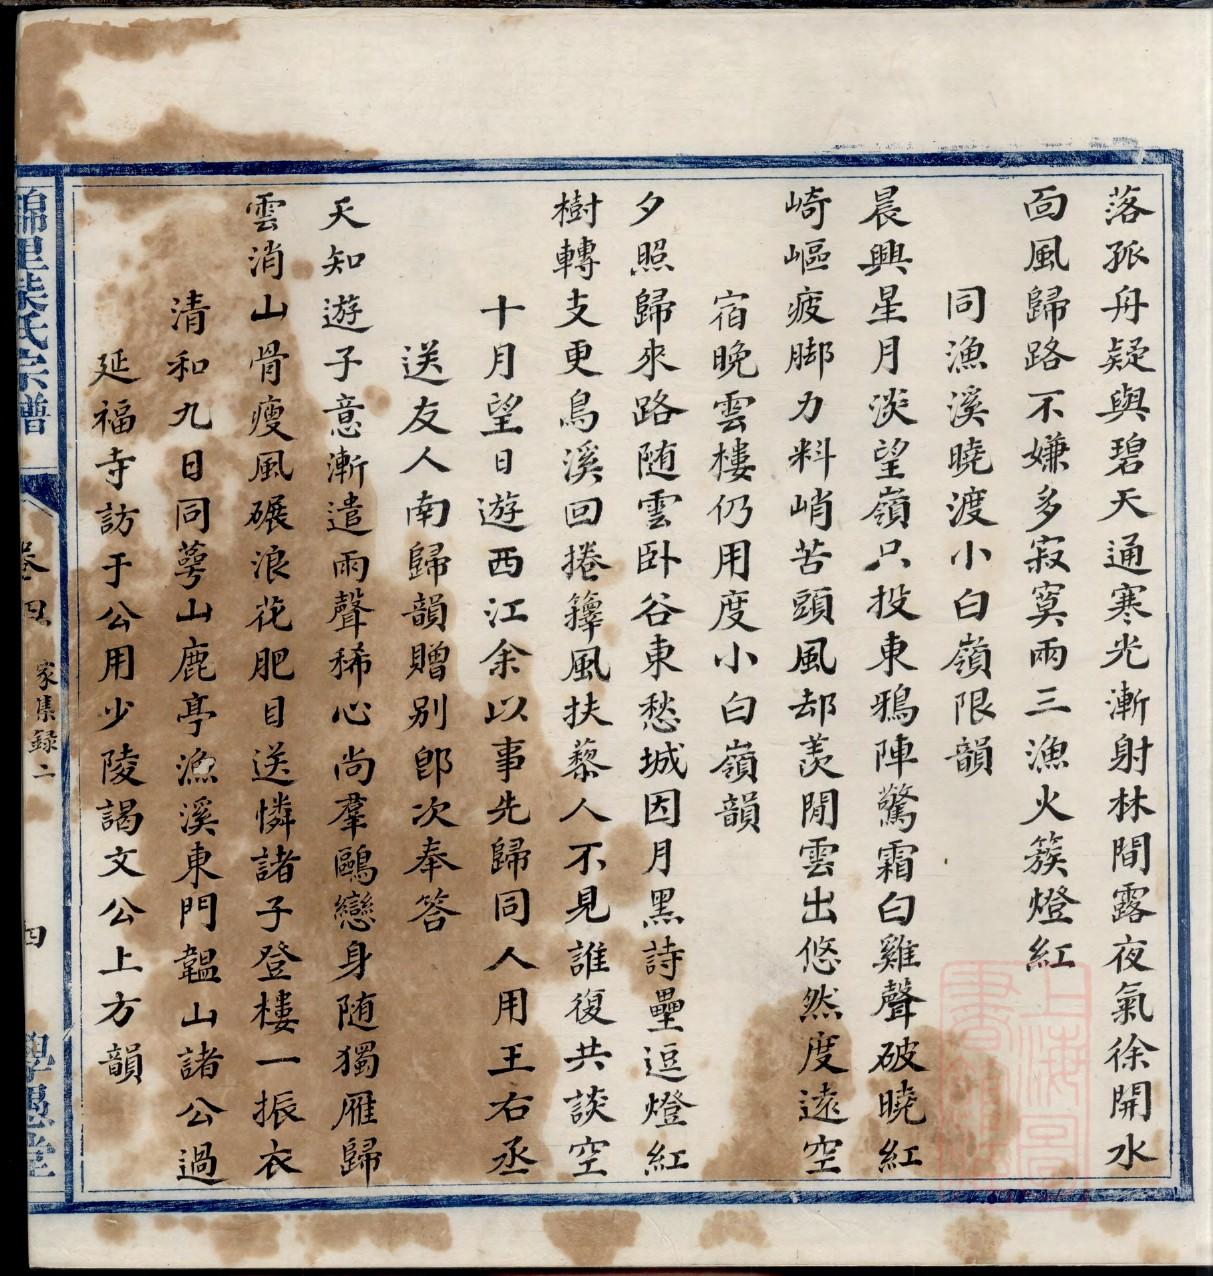 落孤舟疑與碧天通寒光漸射林間露夜氣徐開水
面風歸路不嫌多寂寞兩三漁火簇燈紅
同漁溪曉渡小白嶺限韻
晨興星月淡望嶺只投東鴉陣驚霜白雞聲破曉紅
崎嶇疲脚力料峭苦頭風却羨閒雲出悠然度遠空
宿晚雲樓仍用度小白嶺韻
夕照歸來路随雲卧谷東愁城因月黑詩壘逗燈紅
樹轉支更鳥溪回捲籜風扶藜人不見誰復共談空
十月望日遊西江余以事先歸同人用王右丞
送友人南歸韻贈別即次奉答
天知遊子意漸遣雨聲稀心尚羣鷗戀身随獨雁歸
雲消山骨瘦風碾浪花肥目送憐諸子登樓一振衣
清和九日同萼山鹿亭漁溪東門韞山諸公過
延福寺訪于公用少陵謁文公上方韻
氏宗譜
卷四
家集録二
四
愚堂